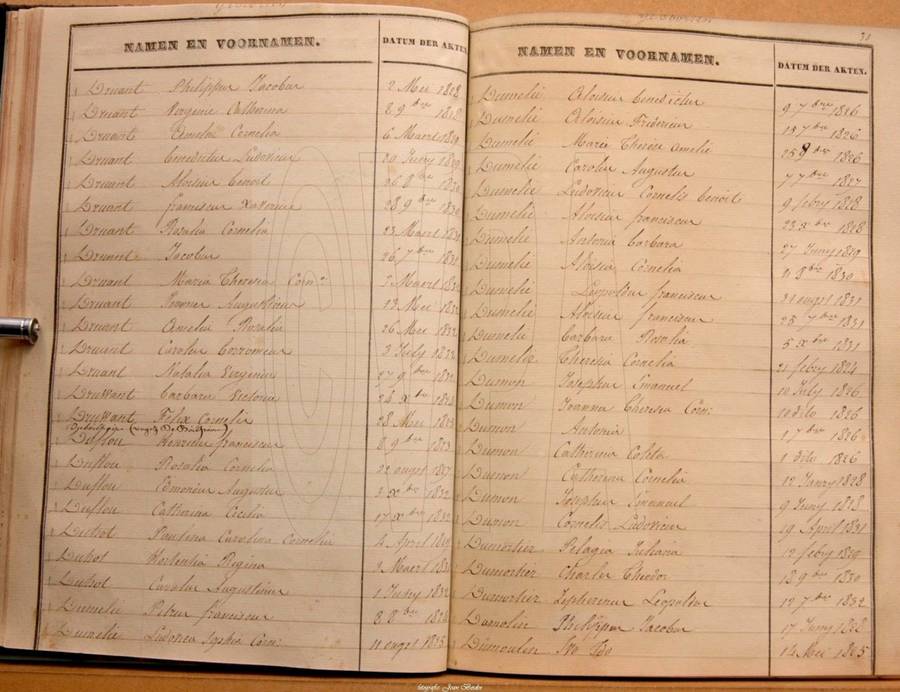 Geboorten
NAMEN EN VOORNAMEN. DATUM DER AKTEN.
Druant Philippus Jacobus 2 Mei 1828
Druant Virginie Catharina 8 9bre 1828
Druant Amelie Cornelia 6 Maert 1829
Druant Benedictus Ludovicus 20 Juny 1829
Druant Aloisius Benoit 26 8bre 1830
Druant Franciscus Xaverius 28 9bre 1830
Druant Rosalia Cornelia 23 Maert 1831
Druant Jacobus 26 7bre 1831
Druant Maria Theresia Corna Maert
Druant Augustinus 13 Mei 1832
Druant Amelia Rosalia 26 Mei 1832
Druant Carolus Borromeus 3 July 1832
Druant Natalia Virginia 27 9bre 1832
Druwant Barbara Victoria 24 xbre
Druwant Felix Cornelis 28 Mei
Duflou Henricus Franciscus 8 9bre 1823
Duflou Rosalia Cornelia 22 augst 1827
Duflou Edmondus Augustus 2 xbre 1832
Duflou Catharina Cecilia 17 xbre 1832
Dubot Paulina Carolina Cornelia 4 April
Dubot Hortentia Regina 2 Maert
Dubot Carolus Augustinus 1 Juny 1832
Dumelie Petrus Franciscus 8 8bre
Dumelie Ludovica Sophia Corn: 11 augst 1825
Geboorten
31
NAMEN EN VOORNAMEN. DATUM DER AKTEN.
Dumelie Aloisius Benedictus 9 7bre 1826
Dumelie Aloisius Fridericus 15 7bre 1826
Dumelie Maria Therese Amelie 25 8bre 1826
Dumelie Carolus Augustus 7 7bre 1827
Dumelie Ludovicus Cornelis Benoit 9 febry 1828
Dumelie Aloisius Franciscus 23 xbre 1828
Dumelie Antonia Barbara 27 Juny 1829
Dumelie Aloisia Cornelia 11 8bre 1830
Dumelie Leopoldus Franciscus 21 augst 1831
Dumelie Aloisius Franciscus 25 7bre 1831
Dumelie Barbara Rosalia 5 xbre 1831
Dumelie Theresia Cornelia 21 febry 1824
Dumon Josephus Emanuel 10 July 1826
Dumon Joanna Theresia Corn: 10 dito 1826
Dumon Antonia 1 7bre 1826
Dumon Catharina Coleta 1 dito 1826
Dumon Catharina Cornelia 12 Janry 1828
Dumon Josephus Emanuel 9 Juny 1828
Dumon Cornelis Ludovicus 19 April 1831
Dumortier Pelagia Juliana 12 febry 1829
Dumortier Charles Theodor 13 9bre 1830
Dumortier Zepherinus Leopoldus 12 7bre 1832
Dumolin Philippus Jacobus 17 Juny 1828
Dumoulin Ivo Bo 14 Mei 1825
fotografie Joan Bexlin